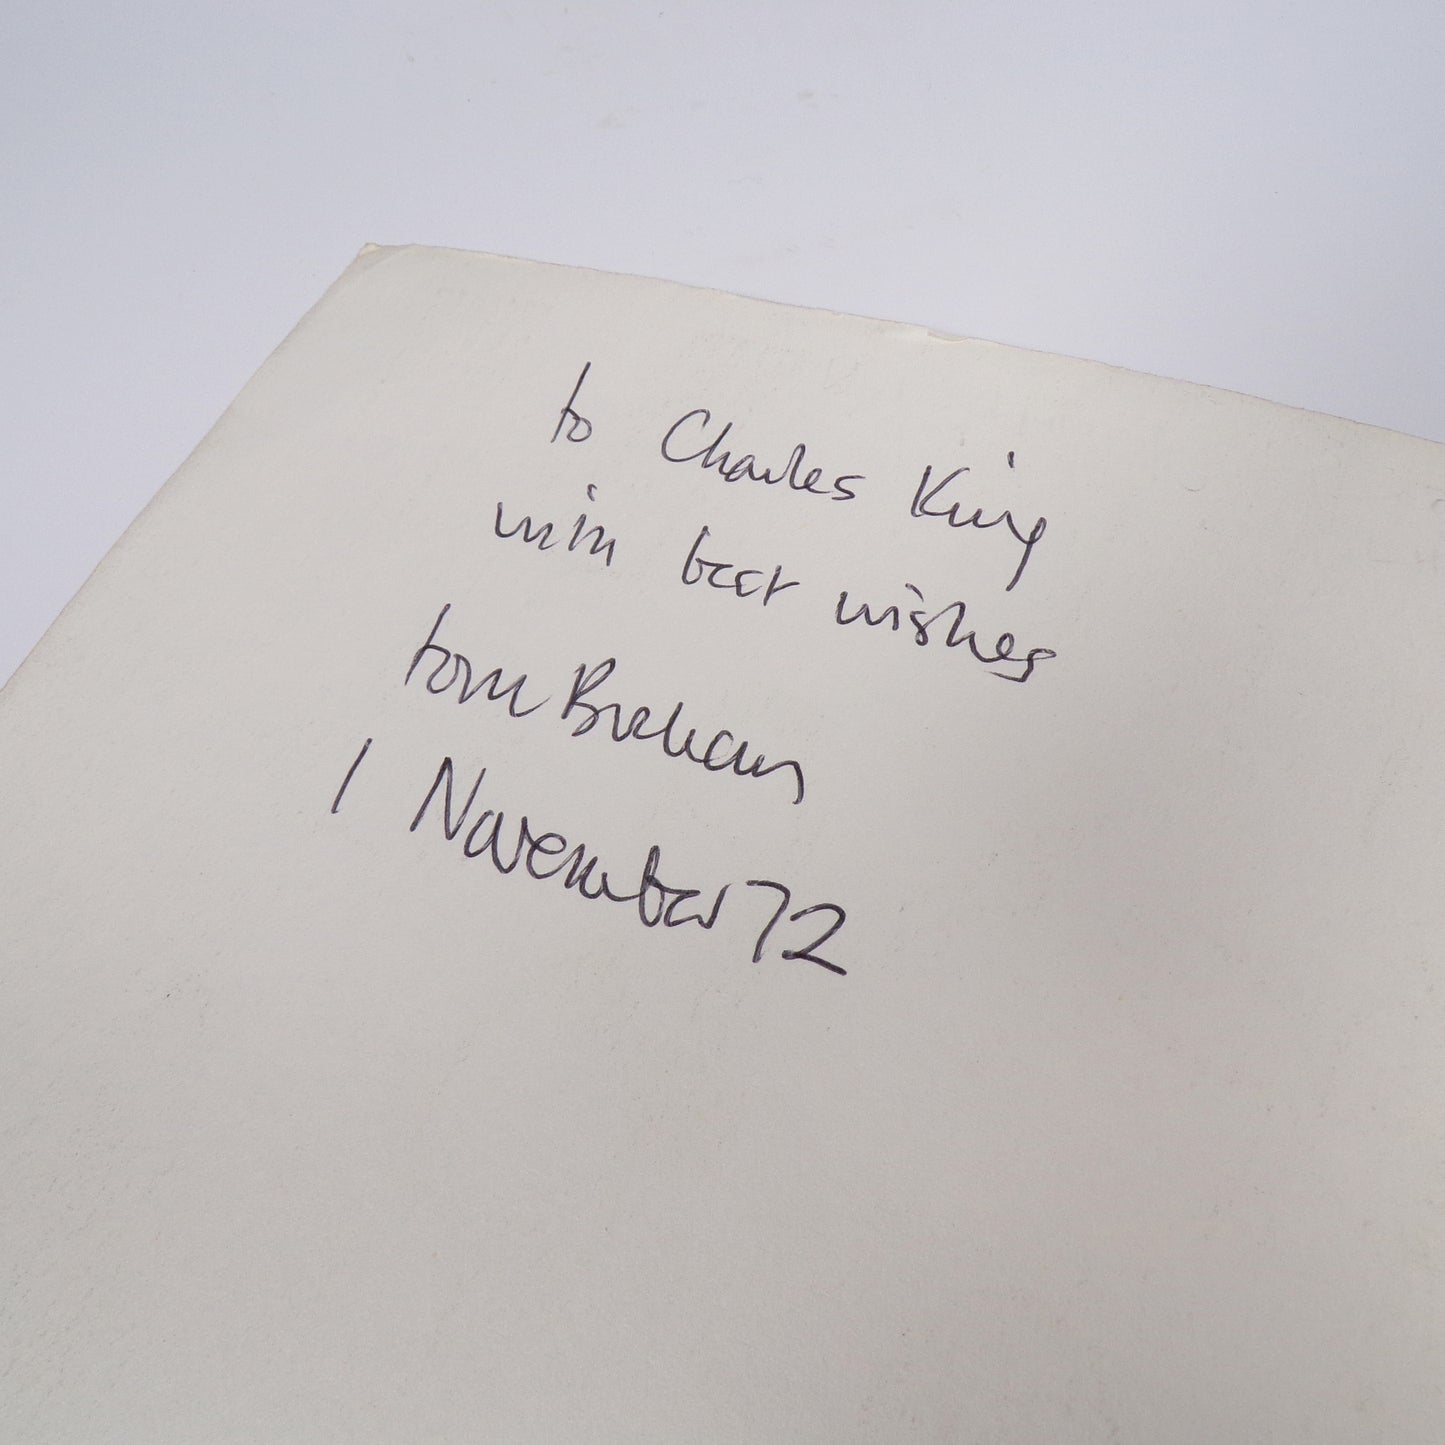 to Charles King
with best wishes
tom Buchan
1 November 72